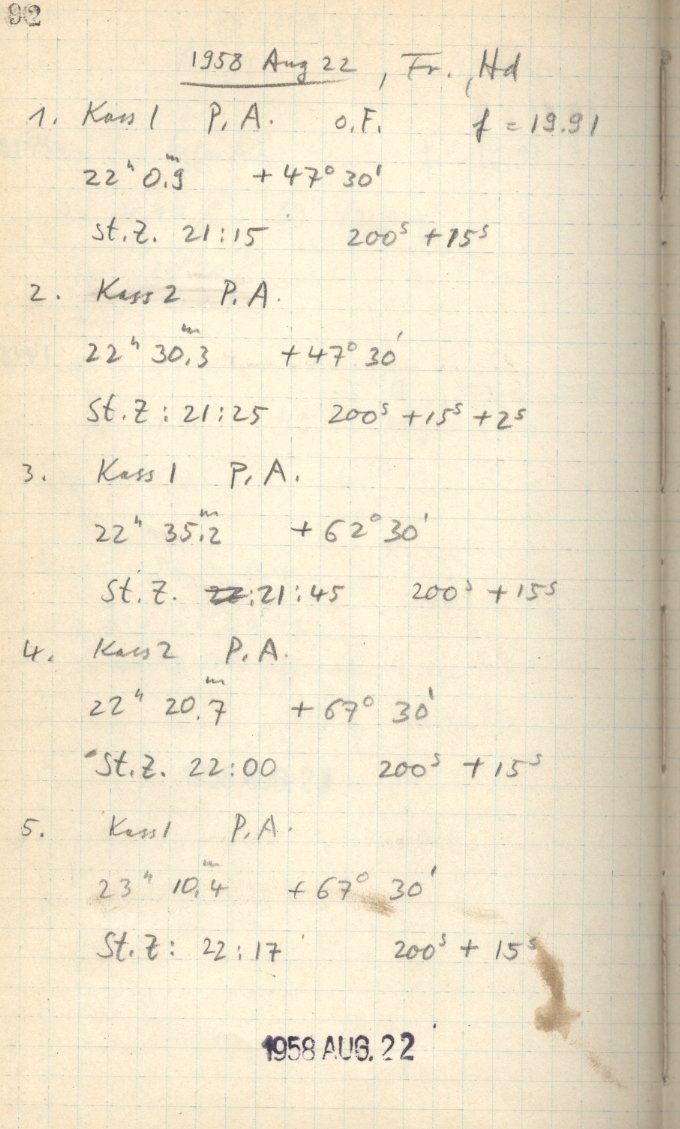 92
1958 Aug 22, Fr., Hd
1. Kass 1 P.A. o.F. f = 19.91
22ʰ 0,9ᵐ +47° 30'
St.Z. 21:15 200ˢ +15ˢ
2. Kass 2 P.A.
22ʰ 30,3ᵐ +47° 30'
St.Z: 21:25 200ˢ +15ˢ +2ˢ
3. Kass 1 P.A.
22ʰ 35,2ᵐ +62° 30'
St.Z. 21:45 200ˢ +15ˢ
4. Kass 2 P.A.
22ʰ 20,7ᵐ +67° 30'
St.Z. 22:00 200ˢ +15ˢ
5. Kass 1 P.A.
23ʰ 10,4ᵐ +67° 30'
St.Z: 22:17 200ˢ + 15ˢ
1958 AUG. 22